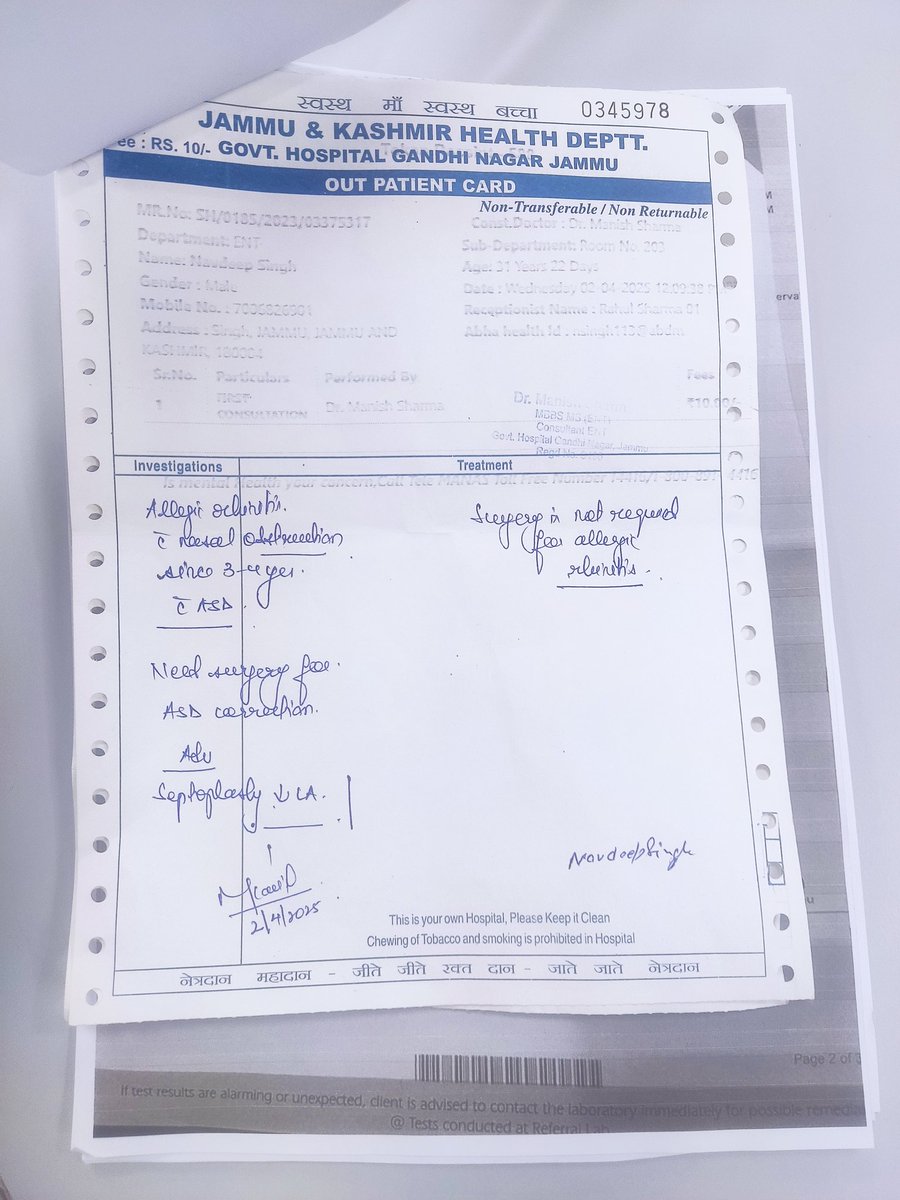 स्वस्थ माँ स्वस्थ बच्चा 0345978
JAMMU & KASHMIR HEALTH DEPTT.
ee : RS. 10/- GOVT. HOSPITAL GANDHI NAGAR JAMMU
OUT PATIENT CARD
Non-Transferable / Non Returnable
MR.No: SH/0185/2023/03375317
Const.Doctor : Dr. Manish Sharma
Department: ENT
Sub-Department: Room No. 203
Name: Navdeep Singh
Age: 31 Years 22 Days
Gender : Male
Date : Wednesday 02-04-2025
Mobile No. :
Receptionist Name : Rahul Sharma 01
Address : Singh, JAMMU, JAMMU AND
Abha health Id :
KASHMIR,
Sr.No. Particulars Performed By Fees
1 FIRST CONSULTATION Dr. Manish Sharma
Consultant ENT
Govt. Hospital Gandhi Nagar, Jammu
Investigations Treatment
Is mental Health your concern,Call Tele MANAS Toll Free Number
Allergic rhinitis.
c̄ nasal obstruction
since 3-4 yrs.
c̄ ASD.
Need surgery for
ASD correction.
Adv
Septoplasty ↓ LA.
2/4/2025
Surgery is not required
for allergic
rhinitis.
Navdeep Singh
This is your own Hospital, Please Keep it Clean
Chewing of Tobacco and smoking is prohibited in Hospital
नेत्रदान महादान - जीते जीते रक्त दान - जाते जाते नेत्रदान
Page 2 of 3
If test results are alarming or unexpected, client is advised to contact the laboratory immediately for possible remedia
@ Tests conducted at Referral Lab